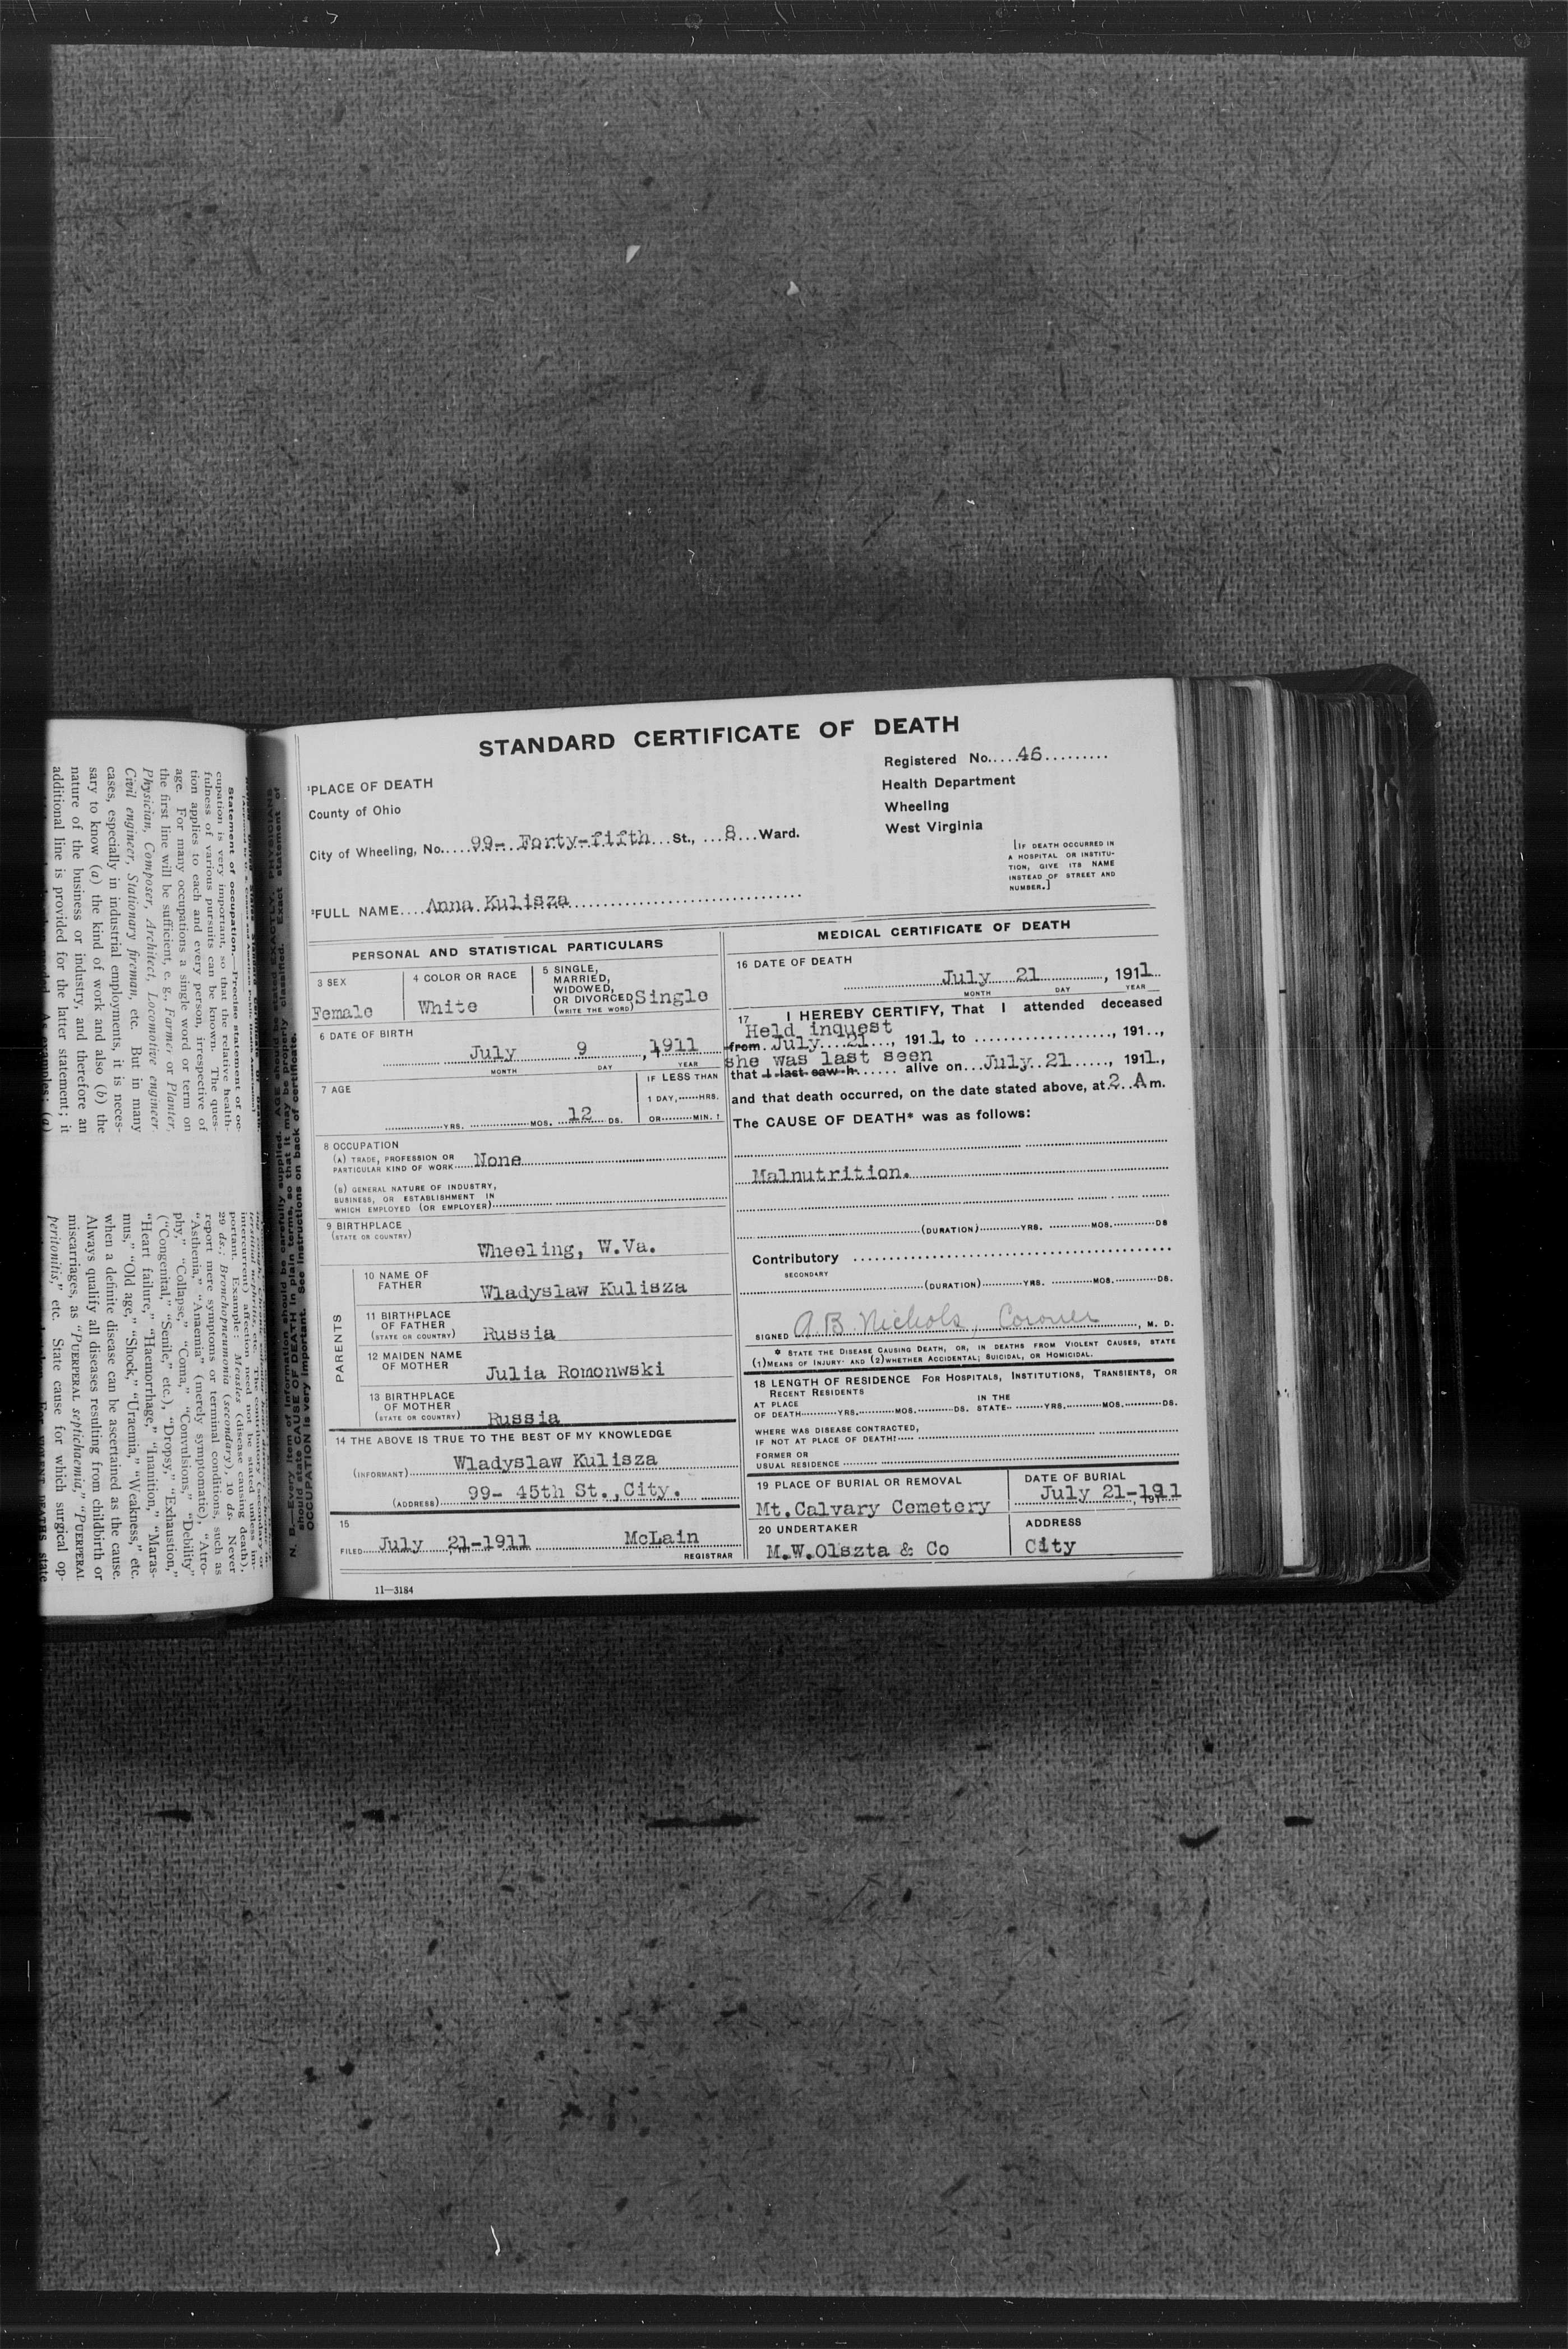 STANDARD CERTIFICATE OF DEATH
Registered No. 46
Health Department
Wheeling
West Virginia
¹PLACE OF DEATH
County of Ohio
City of Wheeling, No. 99- Forty-fifth St., 8 Ward.
[IF DEATH OCCURRED IN
A HOSPITAL OR INSTITU-
TION, GIVE ITS NAME
INSTEAD OF STREET AND
NUMBER.]
²FULL NAME Anna Kulisza
PERSONAL AND STATISTICAL PARTICULARS
3 SEX
Female
4 COLOR OR RACE
White
5 SINGLE,
MARRIED,
WIDOWED,
OR DIVORCED Single
(WRITE THE WORD)
6 DATE OF BIRTH
July 9, 1911
MONTH DAY YEAR
7 AGE
YRS. MOS. 12 DS.
IF LESS THAN
1 DAY, HRS.
OR MIN.?
8 OCCUPATION
(A) TRADE, PROFESSION OR
PARTICULAR KIND OF WORK None
(B) GENERAL NATURE OF INDUSTRY,
BUSINESS, OR ESTABLISHMENT IN
WHICH EMPLOYED (OR EMPLOYER)
9 BIRTHPLACE
(STATE OR COUNTRY)
Wheeling, W.Va.
PARENTS
10 NAME OF
FATHER
Wladyslaw Kulisza
11 BIRTHPLACE
OF FATHER
(STATE OR COUNTRY) Russia
12 MAIDEN NAME
OF MOTHER
Julia Romonwski
13 BIRTHPLACE
OF MOTHER
(STATE OR COUNTRY) Russia
14 THE ABOVE IS TRUE TO THE BEST OF MY KNOWLEDGE
(INFORMANT) Wladyslaw Kulisza
(ADDRESS) 99- 45th St.,City.
15
FILED July 21-1911 McLain
REGISTRAR
11—3184
MEDICAL CERTIFICATE OF DEATH
16 DATE OF DEATH
July 21, 1911
MONTH DAY YEAR
17 I HEREBY CERTIFY, That I attended deceased
Held inquest
from July 21, 1911, to , 191 ,
she was last seen
that I last saw h alive on July 21, 1911,
and that death occurred, on the date stated above, at 2 A m.
The CAUSE OF DEATH* was as follows:
Malnutrition.
(DURATION) YRS. MOS. DS
Contributory
SECONDARY
(DURATION) YRS. MOS. DS.
SIGNED A.B. Nichols, Coroner, M. D.
* STATE THE DISEASE CAUSING DEATH, OR, IN DEATHS FROM VIOLENT CAUSES, STATE
(1) MEANS OF INJURY; AND (2) WHETHER ACCIDENTAL; SUICIDAL, OR HOMICIDAL.
18 LENGTH OF RESIDENCE FOR HOSPITALS, INSTITUTIONS, TRANSIENTS, OR
RECENT RESIDENTS
AT PLACE IN THE
OF DEATH YRS. MOS. DS. STATE YRS. MOS. DS.
WHERE WAS DISEASE CONTRACTED,
IF NOT AT PLACE OF DEATH?
FORMER OR
USUAL RESIDENCE
19 PLACE OF BURIAL OR REMOVAL
Mt.Calvary Cemetery
DATE OF BURIAL
July 21-1911
20 UNDERTAKER
M.W.Olszta & Co
ADDRESS
City
N. B.—Every item of information should be carefully supplied. AGE should be stated EXACTLY. PHYSICIANS
should state CAUSE OF DEATH in plain terms, so that it may be properly classified. Exact statement of
OCCUPATION is very important. See instructions on back of certificate.
Statement of occupation.—Precise statement of oc-
cupation is very important, so that the relative health-
fulness of various pursuits can be known. The ques-
tion applies to each and every person, irrespective of
age. For many occupations a single word or term on
the first line will be sufficient, e. g., Farmer or Planter,
Physician, Composer, Architect, Locomotive engineer,
Civil engineer, Stationary fireman, etc. But in many
cases, especially in industrial employments, it is neces-
sary to know (a) the kind of work and also (b) the
nature of the business or industry, and therefore an
additional line is provided for the latter statement; it
intercurrent) affection need not be stated unless im-
portant. Example: Measles (disease causing death),
29 ds.; Bronchopneumonia (secondary), 10 ds. Never
report mere symptoms or terminal conditions, such as
"Asthenia," "Anaemia" (merely symptomatic), "Atro-
phy," "Collapse," "Coma," "Convulsions," "Debility"
("Congenital," "Senile," etc.), "Dropsy," "Exhaustion,"
"Heart failure," "Haemorrhage," "Inanition," "Maras-
mus," "Old age," "Shock," "Uraemia," "Weakness," etc.
when a definite disease can be ascertained as the cause.
Always qualify all diseases resulting from childbirth or
miscarriages, as "PUERPERAL septichaemia," "PUERPERAL
peritonitis," etc. State cause for which surgical op-